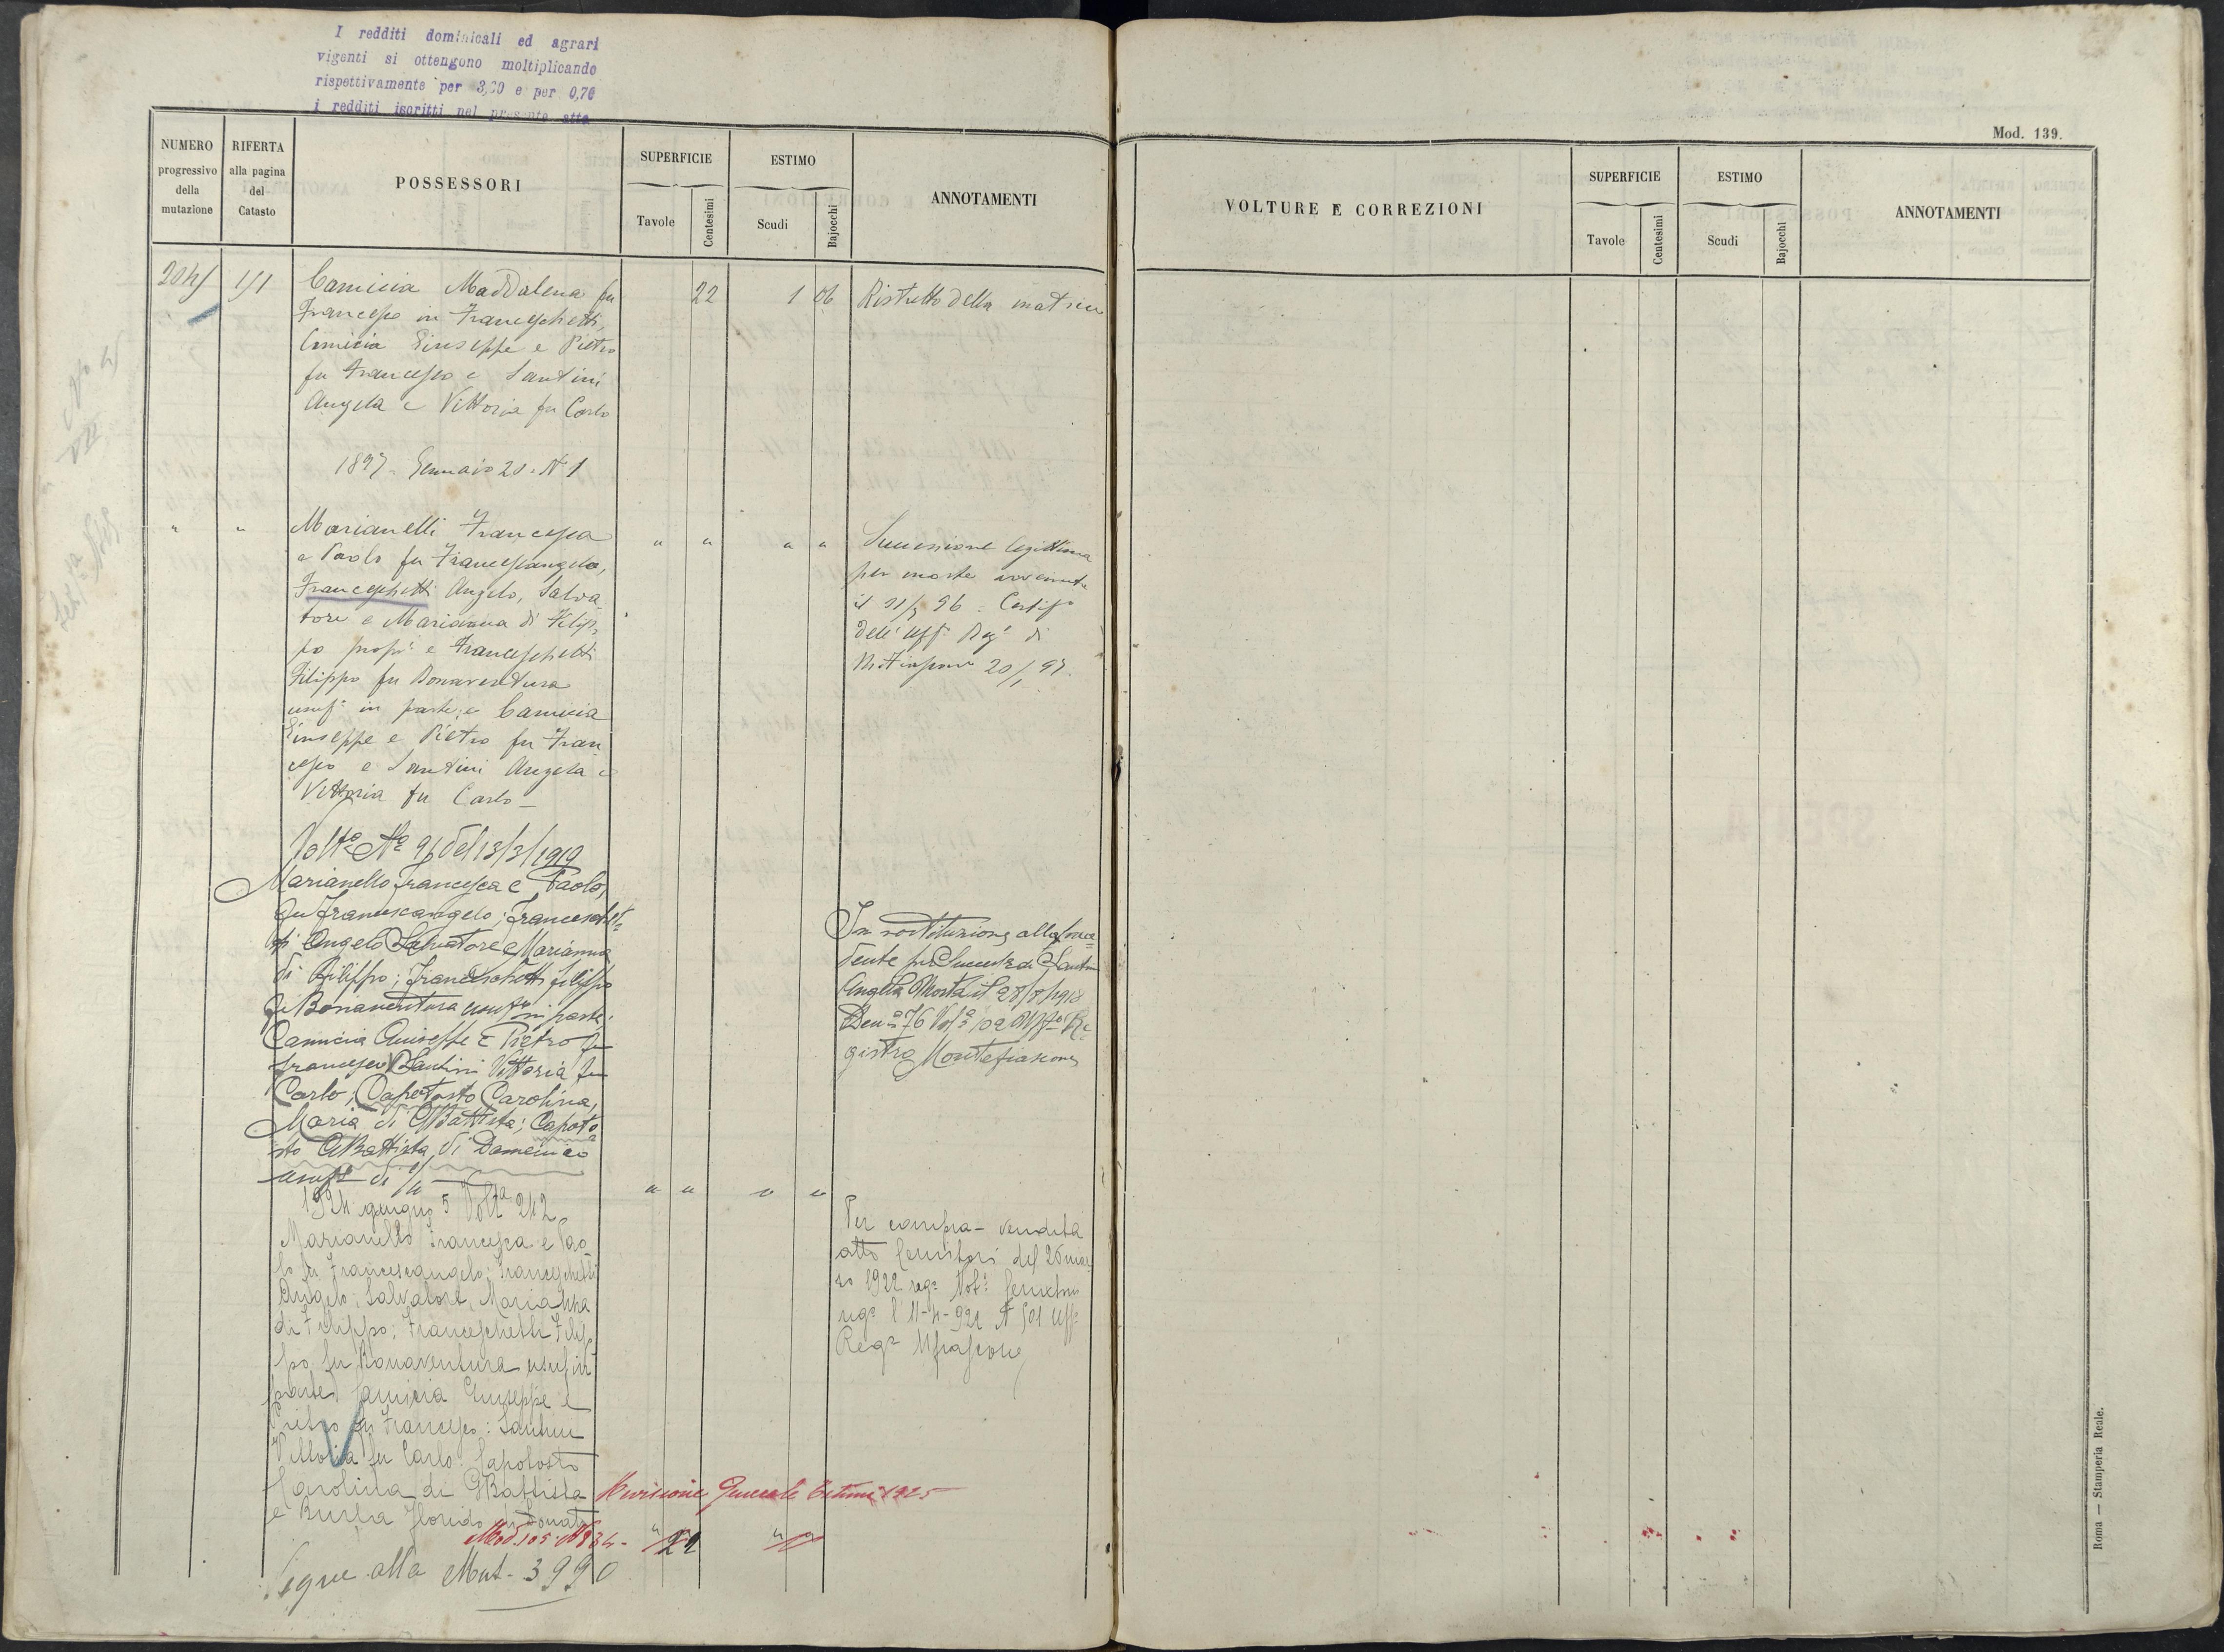 I redditi dominicali ed agrari
vigenti si ottengono moltiplicando
rispettivamente per e per 0,70
i redditi iscritti nel presente atto
Mod. 139.
NUMERO
progressivo
della
mutazione
RIFERTA
alla pagina
del
Catasto
POSSESSORI
SUPERFICIE
Tavole
Centesimi
ESTIMO
Scudi
Bajocchi
ANNOTAMENTI
VOLTURE E CORREZIONI
SUPERFICIE
Tavole
Centesimi
ESTIMO
Scudi
Bajocchi
ANNOTAMENTI
Camicia Maddalena fu 22 1 06 Ristretto della matrice
Francesco in Franceschetti,
Camicia Giuseppe e Pietro
fu Francesco e Santini
Angela e Vittoria fu Carlo
1897 - Gennaio 20 - N 1
" "
Marianelli Francesca
e Paolo fu Francescangelo,
Franceschetti Angelo, Salva
tore e Marianna di Filip
po prop. e Franceschetti
Filippo fu Bonaventura
usuf. in parte; e Camicia
Giuseppe e Pietro fu Fran
cesco e Santini Angela e
Vittoria fu Carlo -
" " " "
Successione legittima
per morte avvenuta
il 96. Certif.
dell' Uff. Reg. di
20/1 97.
Volta N. 96 del 13/3/1919
Marianello Francesca e Paolo,
fu Francescangelo; Franceschet=
ti Angelo Salvatore e Marianna
di Filippo; Franceschetti Filippo
fu Bonaventura usuf. in parte;
Camicia Giuseppe e Pietro fu
Francesco Santini Vittoria fu
Carlo; Capotosto Carolina,
Maria di GBattista; Capoto
sto GBattista di Domenico
usuf. di
In sostituzione alla prece=
dente per Success. di Santini
Angela Morta il 28/8/1918
Den. 76 Vol. 102 Uff. Re=
gistro Montefiascone
" " " "
1924 giugno 5 Volt. 212
Marianello Francesca e Pao-
lo fu Francescangelo; Franceschetti
Angelo, Salvatore, Marianna
di Filippo; Franceschetti Filip
po fu Bonaventura usuf. in
parte; Camicia Giuseppe e
Pietro fu Francesco: Santini
Vittoria fu Carlo: Capotosto
Carolina di GBattista
e Burla Florido di Donato
Per compra - vendita
atto del 26 mar
zo 1922 rog. Not.
reg. l' 11-4-922 N Uff.
Reg. Mfiascone
Revisione Generale Estimi 1925
Mod. 105. N 834 - " 22 " "
Segue alla Mut. 3990
Roma — Stamperia Reale.